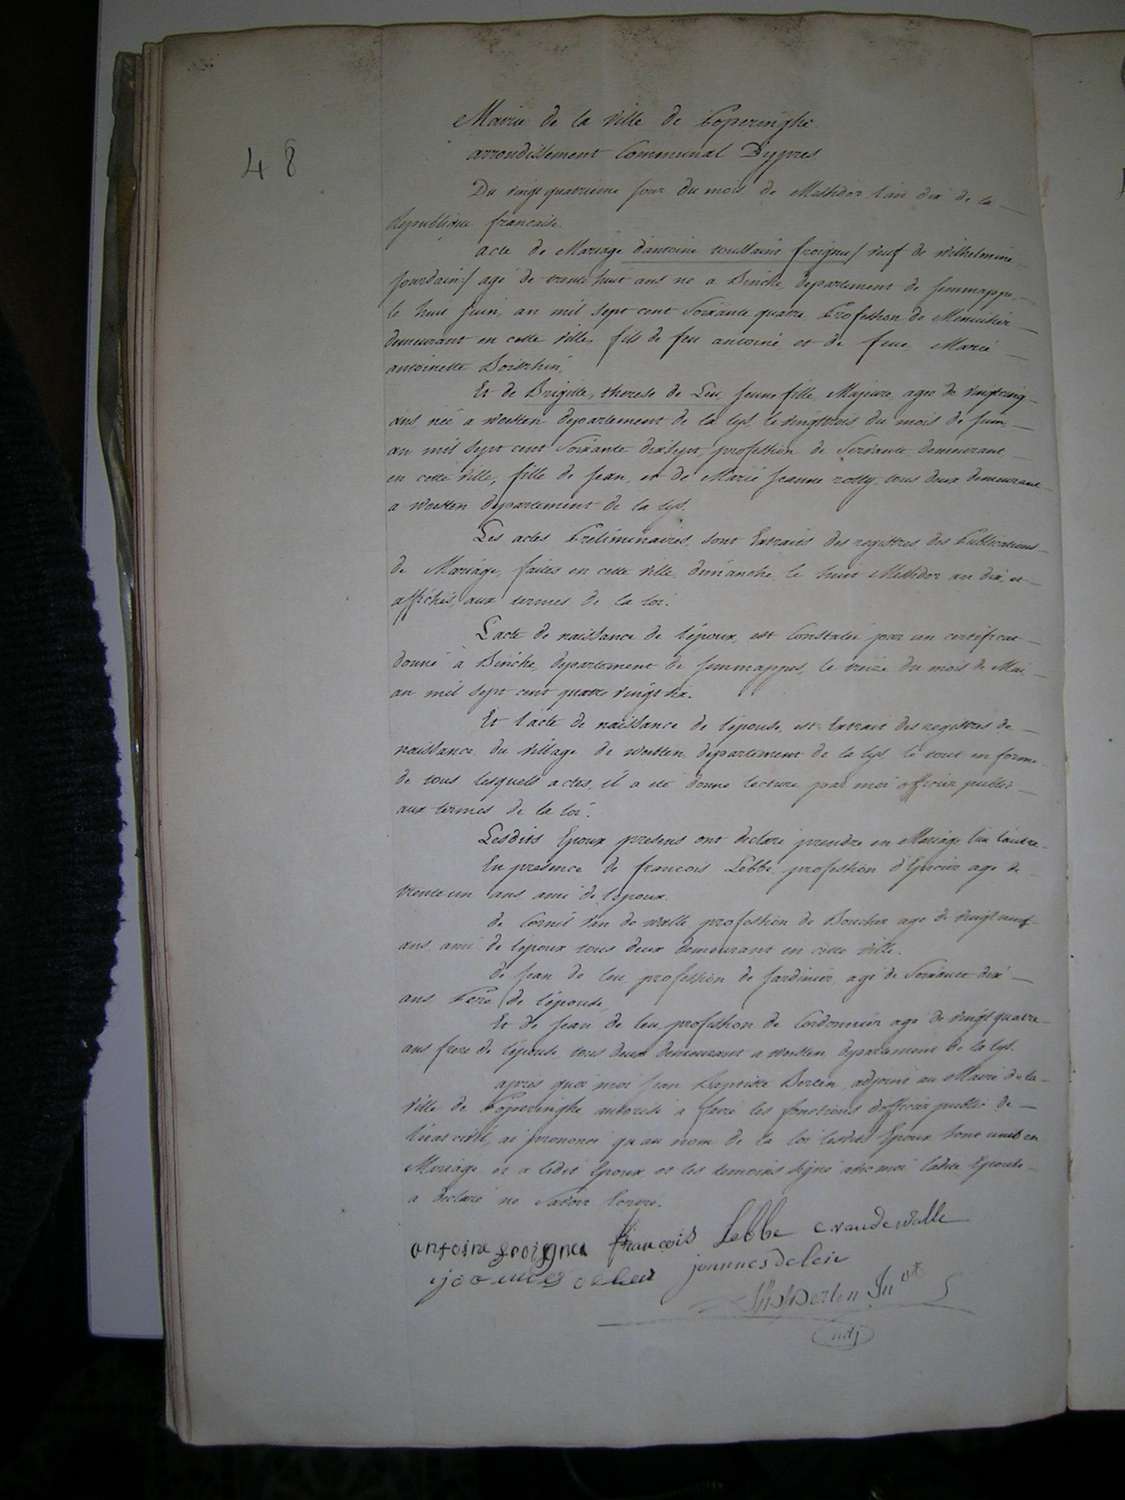 48
Mairie de la Ville de Poperinghe
arrondissement Communal D'ypres
Du vingt quatrieme jour du mois de Messidor l'an dix de la
Republique française.
acte de Mariage d'antoine toussaint froignez / veuf de Wilhelmine
Jourdain / agé de trente huit ans né a Binche, departement de Jemmappe,
le huit Juin, an mil sept cent soixante quatre, Profession de Menuisier
demeurant en cette ville, fils de feu antoine et de feue Marie
antoinette
Et de Brigitte, therese de Leu, jeune fille, Majeure, agee de vingtcinq
ans née a Westen departement de la Lys, le vingttrois du mois de Juin
an mil sept cent soixante dixsept, profession de Servante demeurant
en cette ville, fille de Jean, et de Marie Jeanne rotty, tous deux demeurant
a Westen departement de la Lys.
Les actes Préliminaires, sont Extraits des registres des Publications
de Mariage, faites en cette ville, dimanche, le huit Messidor an dix, et
affichés, aux termes de la loi.
L'acte de naissance de l'époux, est Constaté par un certificat
donné à Binche, departement de Jemmappes, le treize du mois de Mai
an mil sept cent quatre vingt dix.
Et l'acte de naissance de l'épouse, est Extrait des registres de
naissance du village de Westen, departement de la Lys, le tout en forme
de tous lesquels actes, il a été donné lecture par moi officier public
aux termes de la loi.
Lesdits Epoux presens ont déclaré prendre en Mariage l'un l'autre
En presence de françois Lebbe, profession d'Epicier agé de
trente un ans ami de l'epoux.
de Cornil Van de walle profession de Boucher agé de vingt neuf
ans, ami de l'époux tous deux demeurant en cette ville.
de Jean de leu profession de Jardinier, agé de Soixante dix
ans Pere de l'épouse,
Et de Jean de leu, profession de Cordonnier agé de vingt quatre
ans frere de l'épouse, tous deux demeurant a Westen, departement de la Lys.
après quoi moi Jean Baptiste Berten, adjoint au Maire de la
ville de Poperinghe autorisé a faire les fonctions d'officier public de
l'état civil, ai prononcé qu'au nom de la loi lesdits Epoux sont unis en
Mariage et a ledit Epoux et les temoins signé avec moi ladite Epouse
a declaré ne savoir Ecrire.
antoine froignez françois Lebbe c vandewalle
joannes deleu joannes deleu
Berten
adj